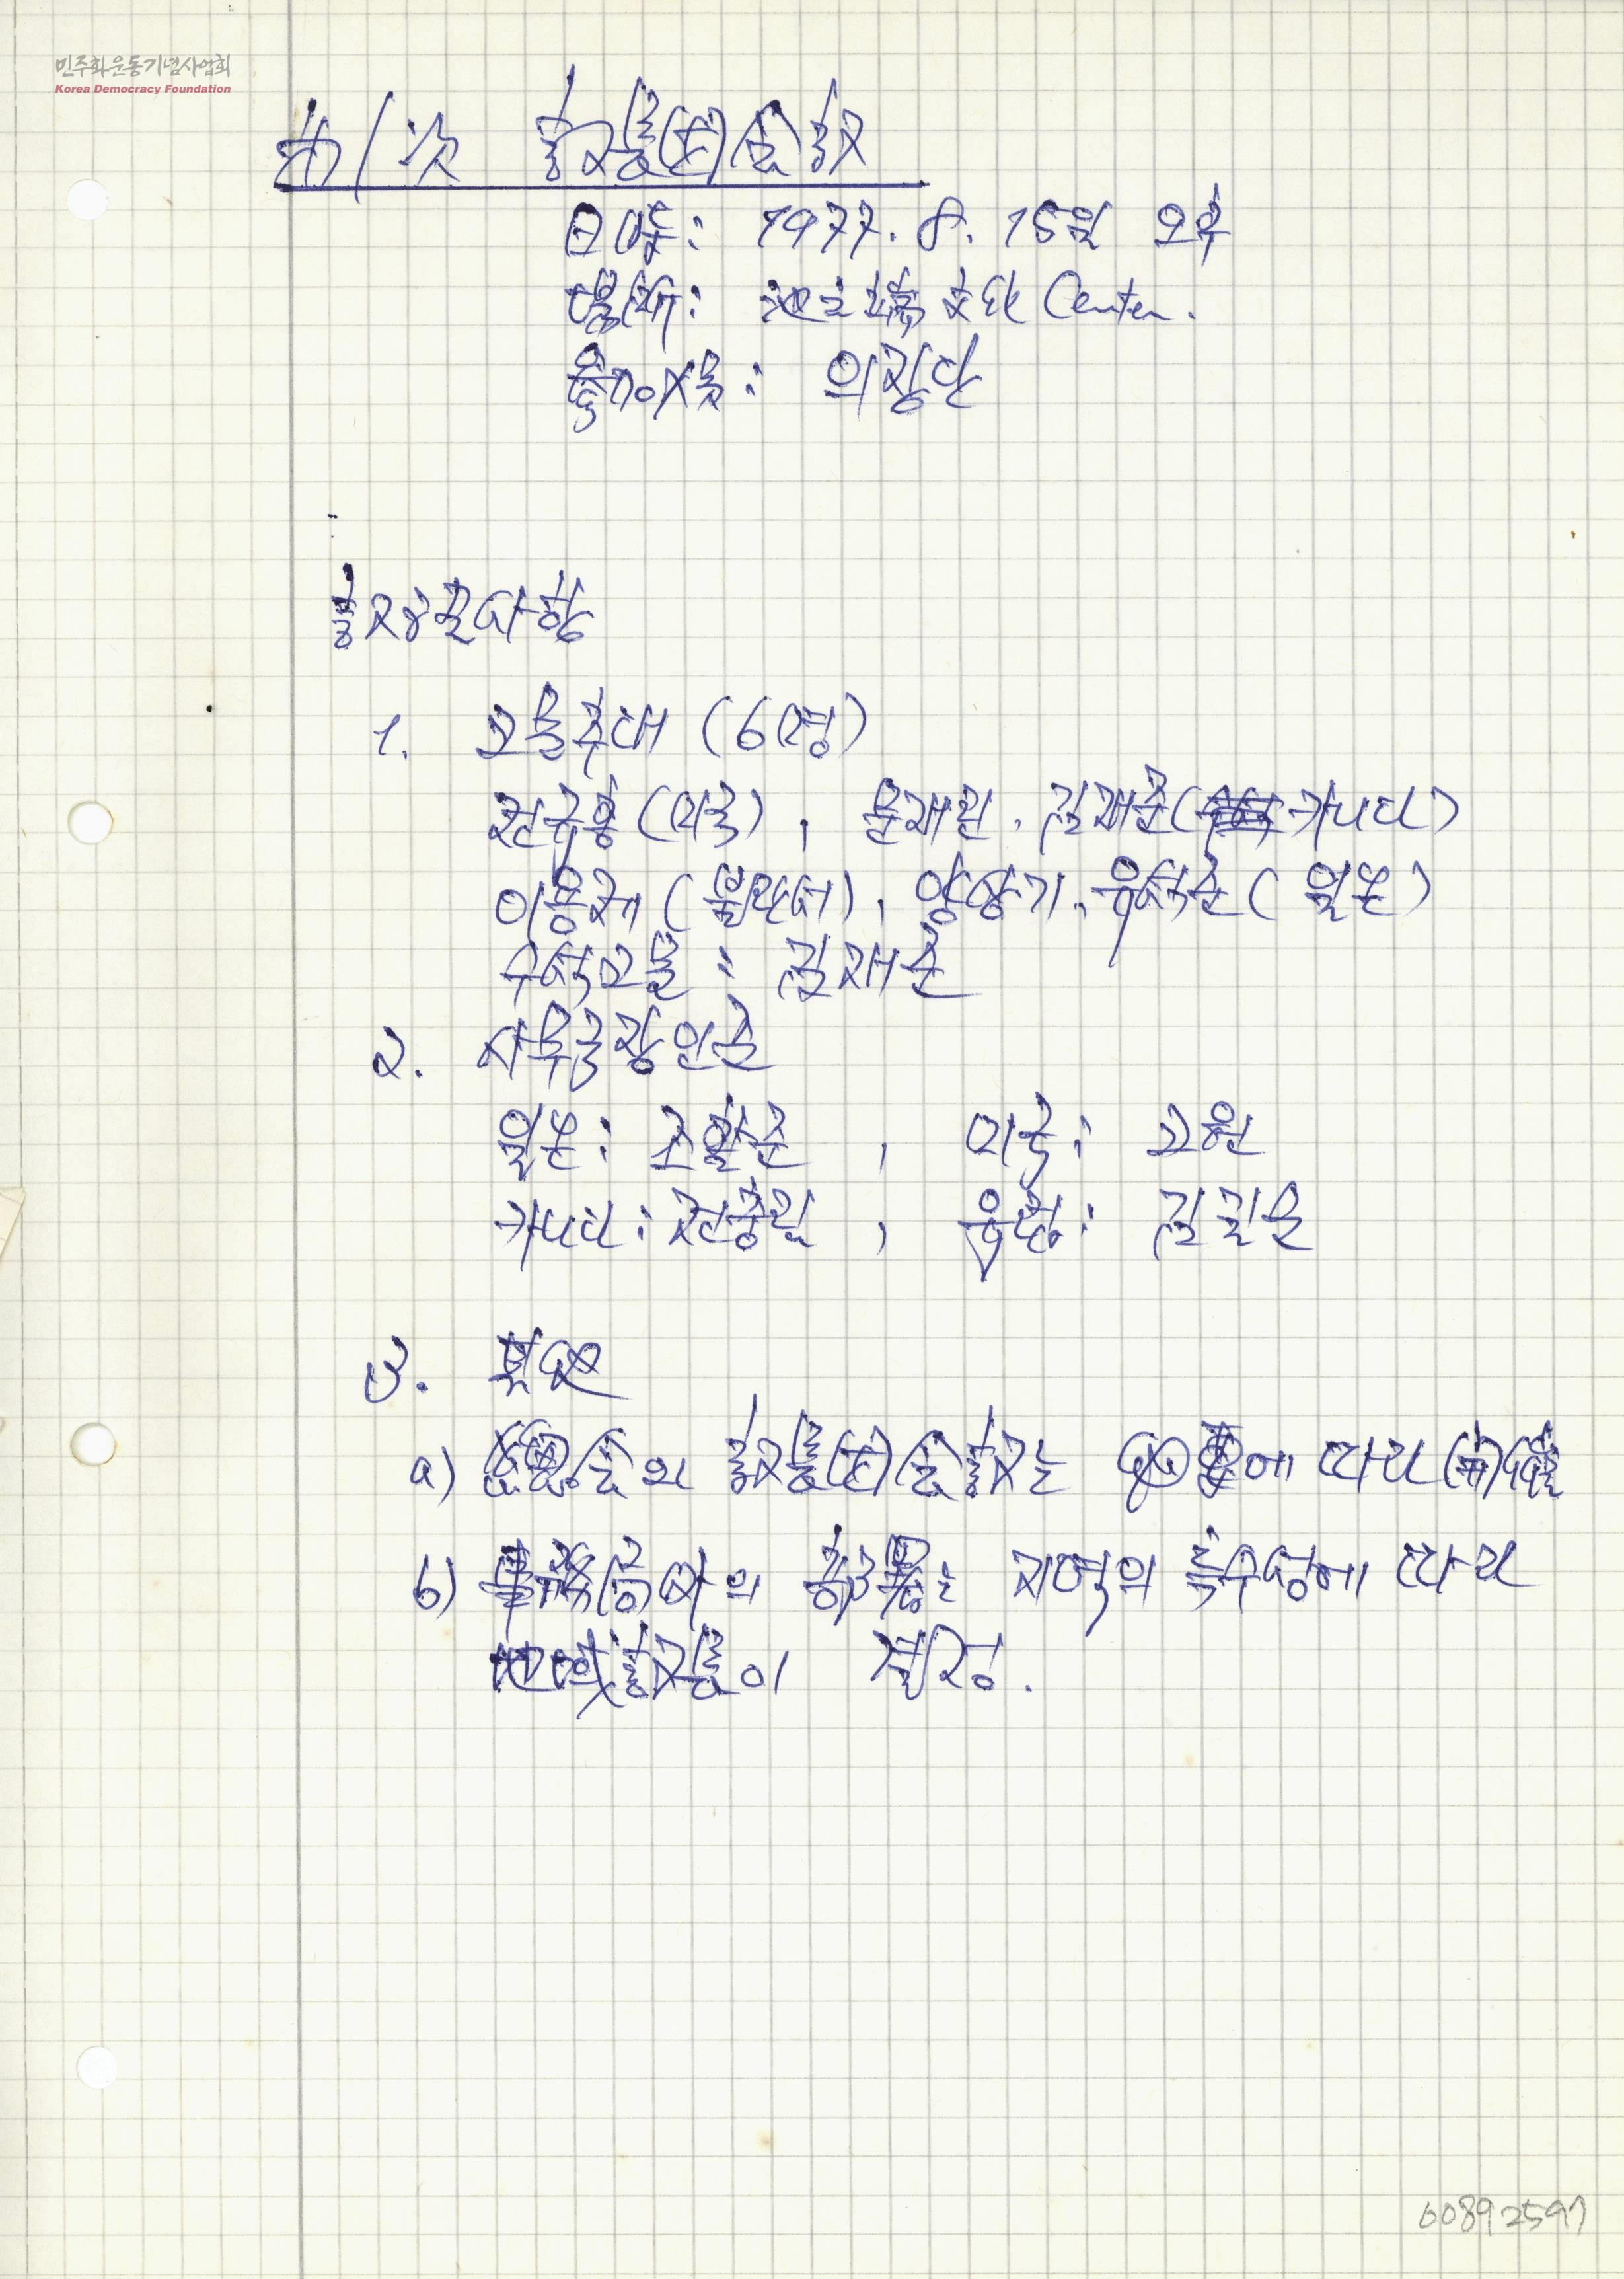 민주화운동기념사업회
Korea Democracy Foundation
才1次 議長團会議
日時: 1977. 8. 15일 오후
場所: 池之端文化 Center.
参加人員: 의장단
議決사항
1. 고문추대 (6명)
전규홍 (미국), 문재린. 김재준 (카나다)
이용제 (불란서), 양상기. 유석준 (일본)
수석고문: 김재준
2. 사무국장인준
일본: 조활준, 미국: 고원
카나다: 전충림, 유럽: 김길순
3. 其他
a) 会의 議長團会議는 必要에 따라 開催
b) 事務局 의 는 지역의 특수성에 따라
地域議長이 결정.
60892597